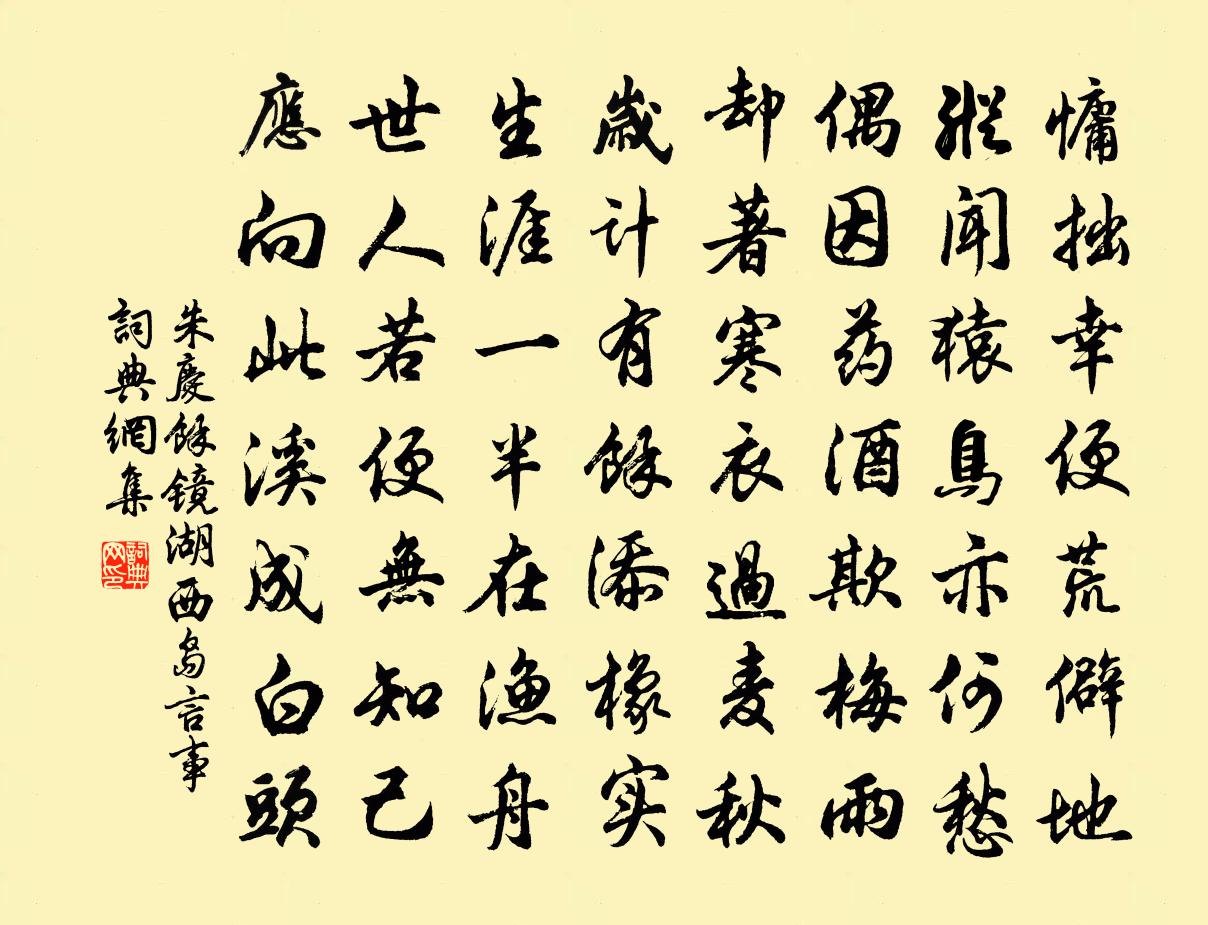 慵拙幸便荒僻地
縱闻猿鳥亦何愁
偶因药酒欺梅雨
却著寒衣過麦秋
歲计有餘添橡实
生涯一半在漁舟
世人若便無知己
應向此溪成白頭
朱慶餘鏡湖西島言事
詞典網集
詞典网印